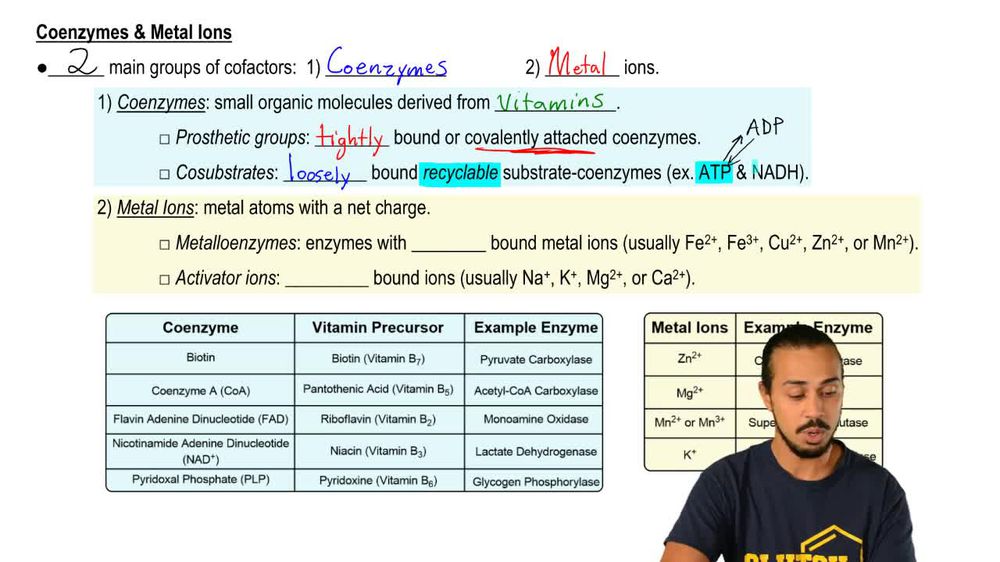 Coenzymes & Metal Ions
● 2 main groups of cofactors: 1) Coenzymes 2) Metal ions.
1) Coenzymes: small organic molecules derived from Vitamins.
□ Prosthetic groups: tightly bound or covalently attached coenzymes.
ADP
□ Cosubstrates: loosely bound recyclable substrate-coenzymes (ex. ATP & NADH).
2) Metal Ions: metal atoms with a net charge.
□ Metalloenzymes: enzymes with ________ bound metal ions (usually Fe²⁺, Fe³⁺, Cu²⁺, Zn²⁺, or Mn²⁺).
□ Activator ions: _________ bound ions (usually Na⁺, K⁺, Mg²⁺, or Ca²⁺).
Coenzyme Vitamin Precursor Example Enzyme
Biotin Biotin (Vitamin B₇) Pyruvate Carboxylase
Coenzyme A (CoA) Pantothenic Acid (Vitamin B₅) Acetyl-CoA Carboxylase
Flavin Adenine Dinucleotide (FAD) Riboflavin (Vitamin B₂) Monoamine Oxidase
Nicotinamide Adenine Dinucleotide
(NAD⁺) Niacin (Vitamin B₃) Lactate Dehydrogenase
Pyridoxal Phosphate (PLP) Pyridoxine (Vitamin B₆) Glycogen Phosphorylase
Metal Ions Enzyme
Zn²⁺
Mg²⁺
Mn²⁺ or Mn³⁺
K⁺